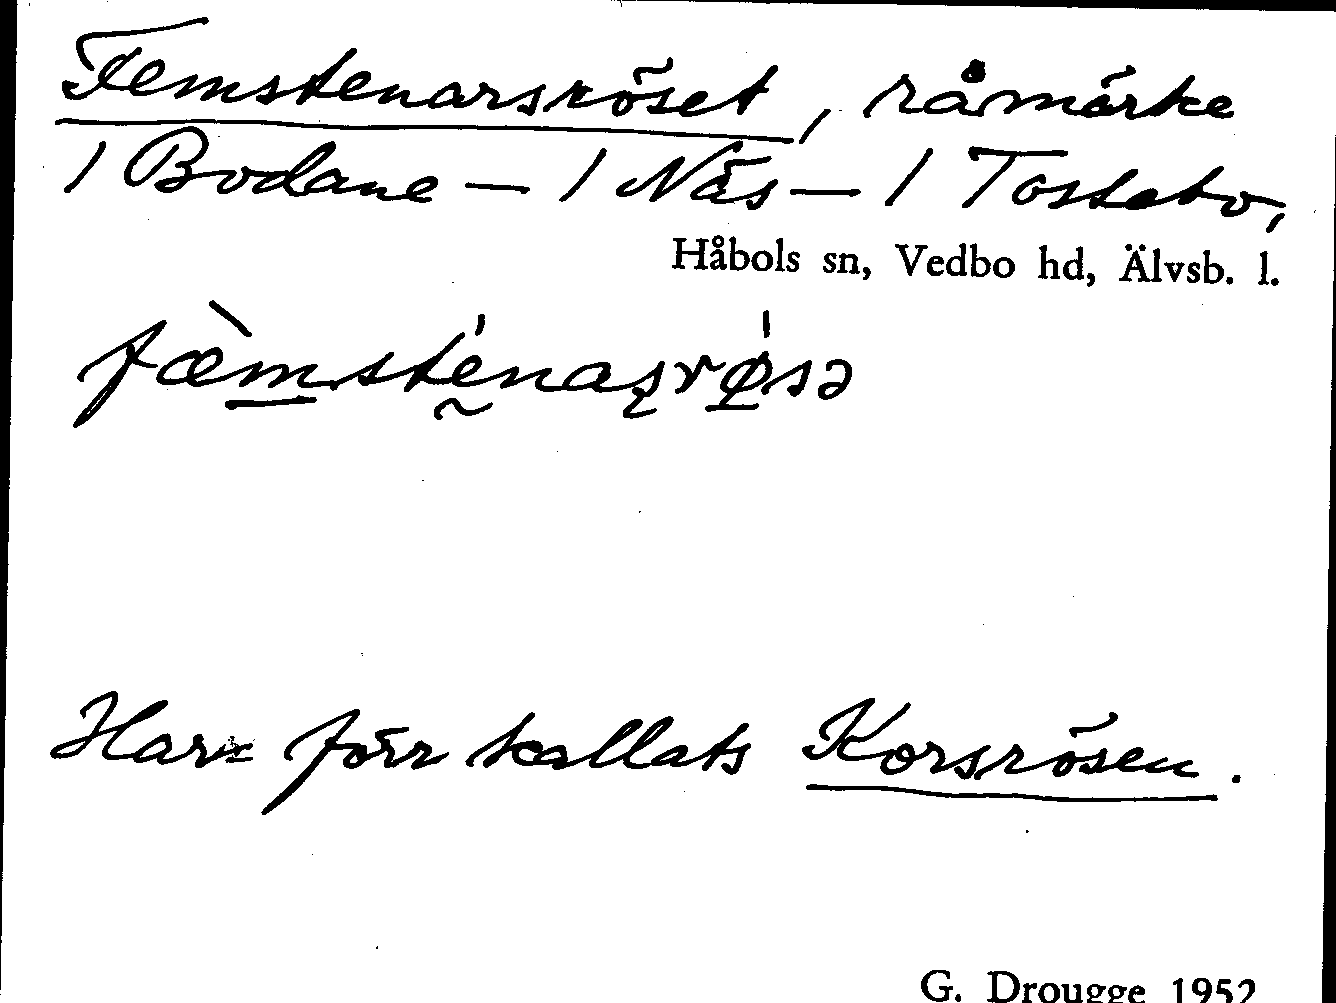 Femstenarsröset, råmärke
1 Bodane – 1 Näs – 1 Tostebo,
Håbols sn, Vedbo hd, Älvsb. l.
fæ̀mste̍naʂrø̍sə
Har förr kallats Korsrösen.
G. Drougge 1952